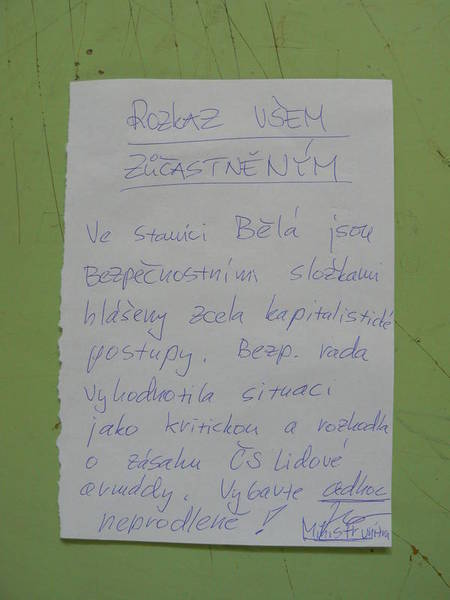 ROZKAZ VŠEM
ZÚČASTNĚNÝM
Ve stanici Bělá jsou
Bezpečnostními složkami
hlášeny zcela kapitalistické
postupy. Bezp. rada
vyhodnotila situaci
jako kritickou a rozhodla
o zásahu ČS Lidové
armády. Vybavte adhoc
neprodleně!
Ministr vnitra